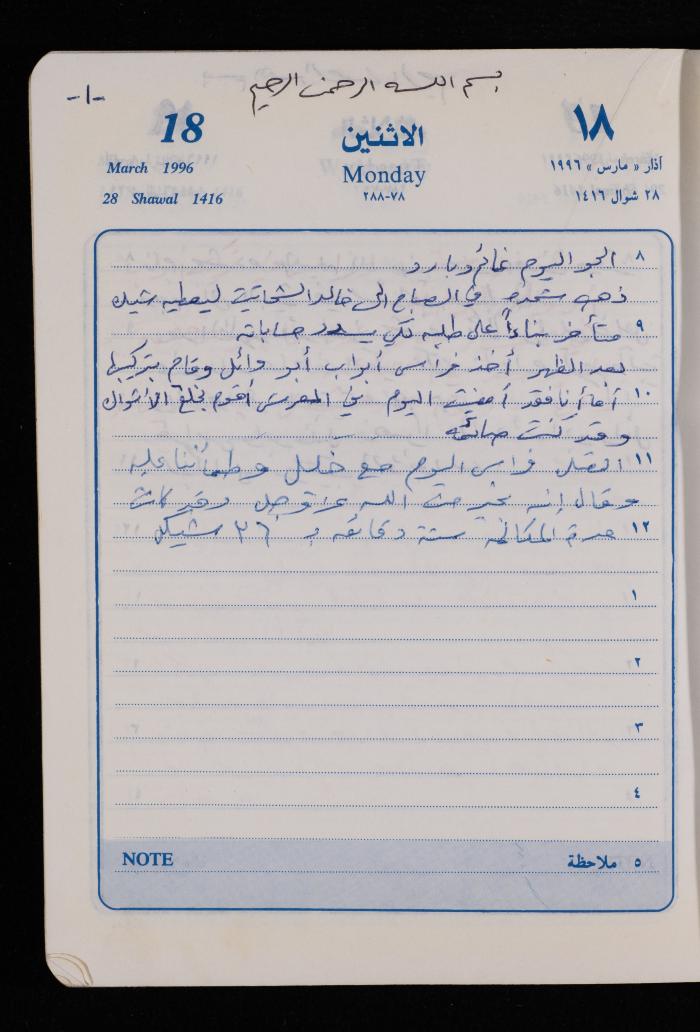 بسم الله الرحمن الرحيم
-١-
18 الاثنين ١٨
March 1996 Monday آذار « مارس » ١٩٩٦
28 Shawal 1416 ٢٨٨-٧٨ ٢٨ شوال ١٤١٦
٨ الجو اليوم غائم وبارد
ذهب في الصباح الى خالد ليعطيه شيك
٩ متأخر بناءاً على طلبه لكي يسدد حساباته
بعد الظهر أخذ فراس أبواب أبو وائل وقام بتركيبها
١٠ أما أنا فقد أمضيت اليوم في المغرس أقوم بخلع الأشوال
وقد كنت صائمه
١١ اتصل فراس اليوم مع خليل وطمأننا عليه
وقال إنه بخير من الله عز وجل وقد كانت
١٢ مدة المكالمة ستة دقائق بـ ٢٦ شيكل
١
٢
٣
٤
NOTE ٥ ملاحظة